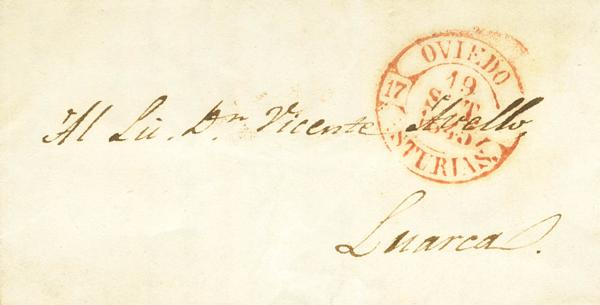 OVIEDO
17
19
ASTURIAS.
Al Lic. Dn. Vicente Avello,
Luarca.